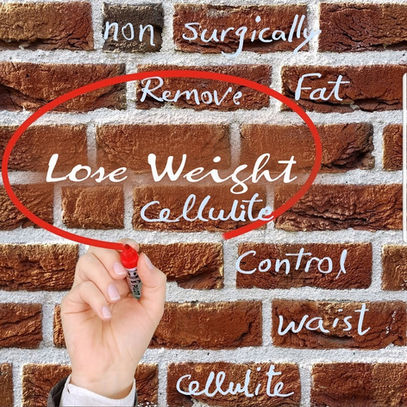 non surgically
Remove Fat
Lose Weight
Cellulite
Control
waist
cellulite